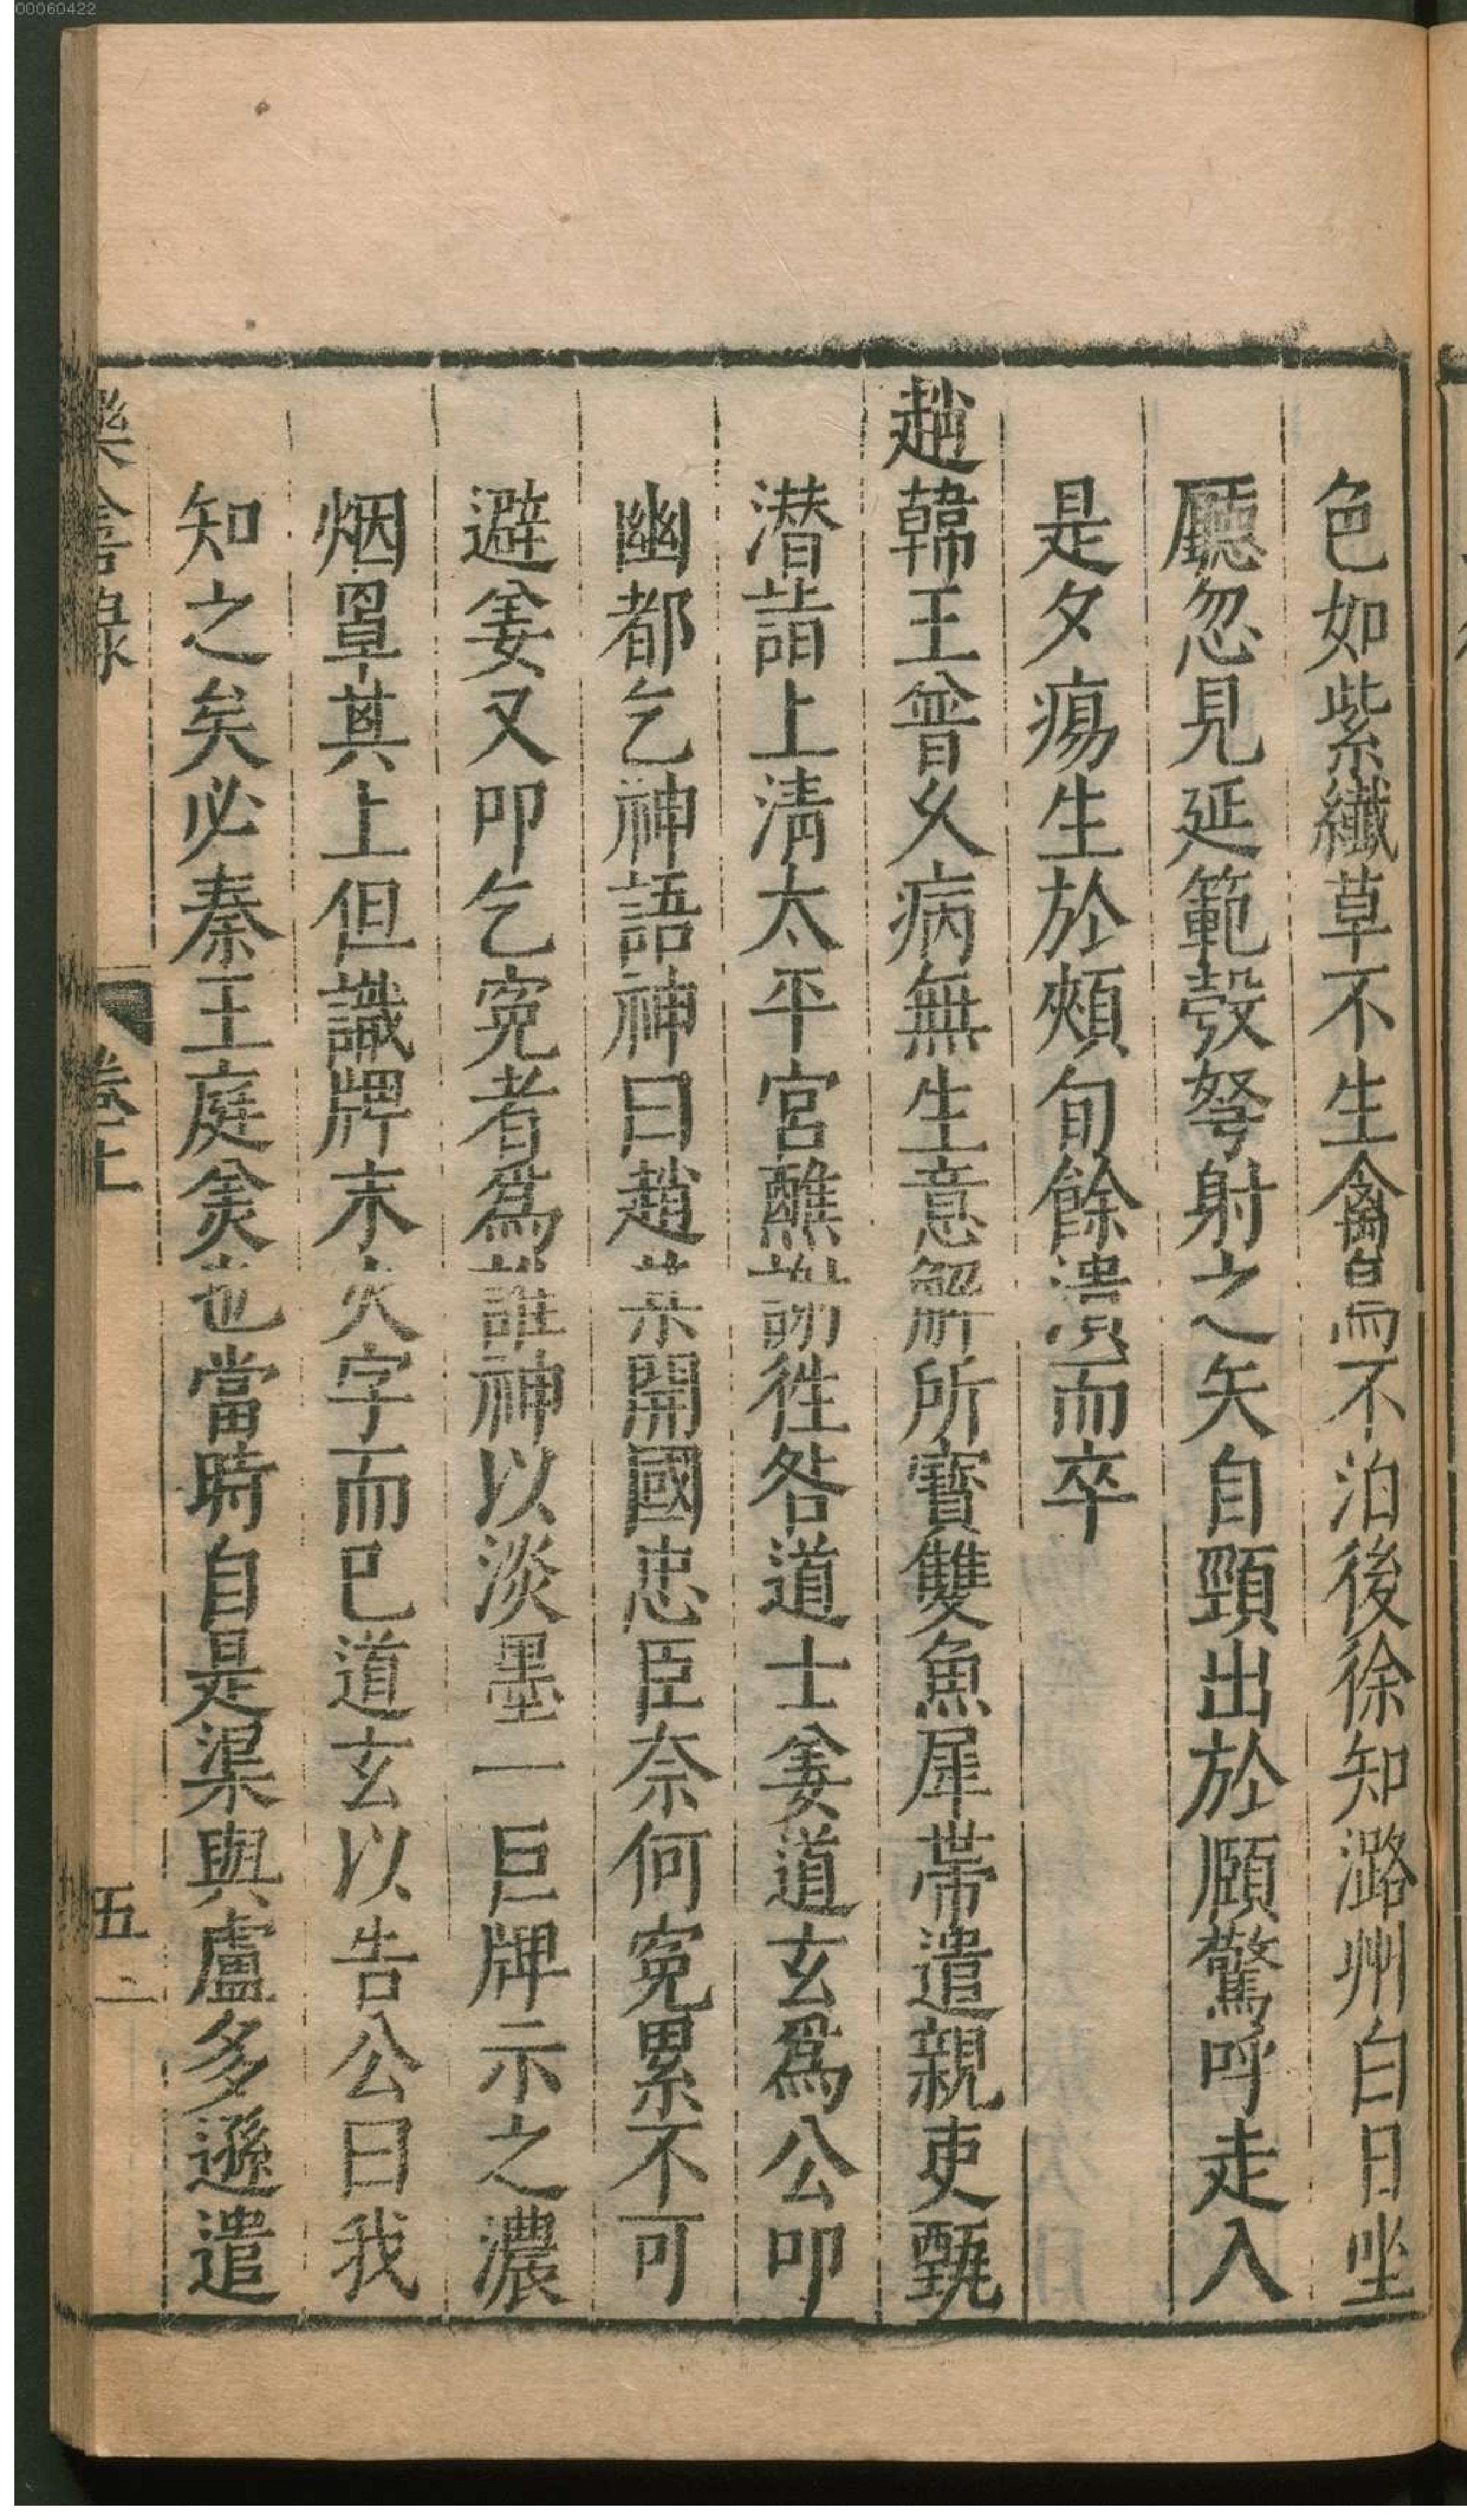 色如紫纎草不生禽鳥不泊後徐知潞州白日坐
廳忽見延範彀弩射之矢自頸出於頤驚呼走入
是夕瘍生於頰旬餘潰而卒
趙韓王普久病無生意解所寶雙魚犀帶遣親吏甄
潜詣上清太平宮醮謝徃咎道士姜道玄爲公叩
幽都乞神語神曰趙某開國忠臣奈何寃累不可
避姜又叩乞寃者爲誰神以淡墨一巨牌示之濃
烟罩其上但識牌末火字而已道玄以告公曰我
知之矣必秦王庭美也當時自是渠與盧多遜遣
樂善錄 卷上 五
00060422